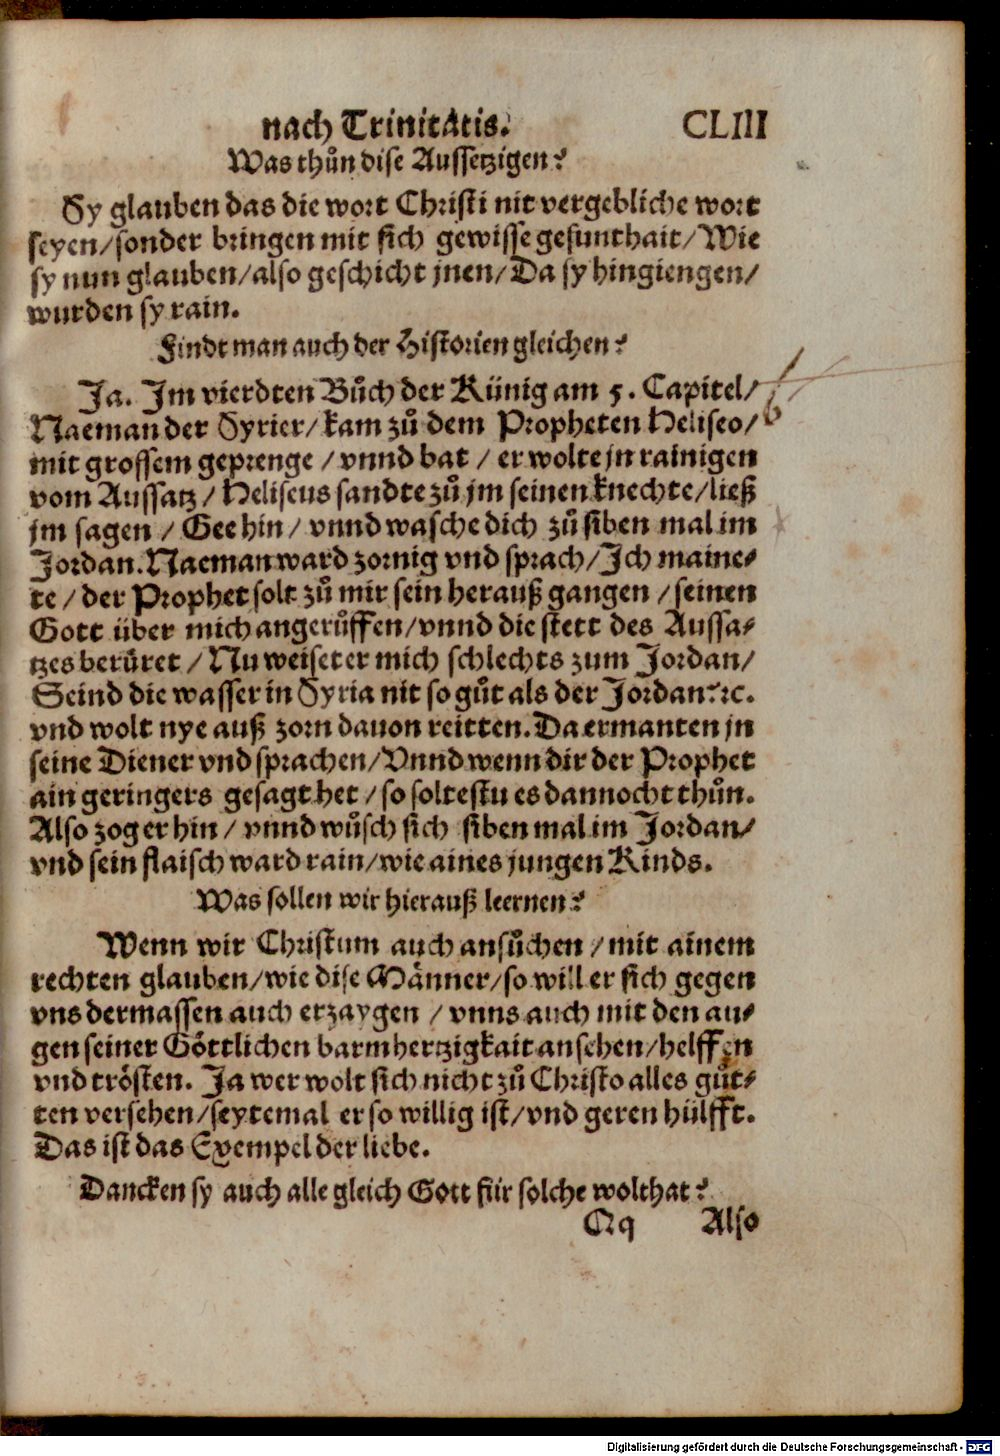 nach Trinitatis.
CLIII
Was thůn dise Aussetzigen?
Sy glauben das die wort Christi nit vergebliche wort
seyen/sonder bringen mit sich gewisse gesunthait/Wie
sy nun glauben/also geschicht jnen/Da sy hingiengen/
wurden sy rain.
Findt man auch der Historien gleichen?
Ja. Im vierdten Bůch der Künig am 5. Capitel/
Naeman der Syrier/kam zů dem Propheten Heliseo/
mit grossem geprenge/vnnd bat/er wolte jn rainigen
vom Aussatz/Heliseus sandte zů jm seinen knechte/ließ
jm sagen/Gee hin/vnnd wasche dich zů siben mal im
Jordan. Naeman ward zornig vnd sprach/Ich maine⸗
te/der Prophet solt zů mir sein herauß gangen/seinen
Gott über mich angerůffen/vnnd die stett des Aussa⸗
tzes berüret/Nu weiset er mich schlechts zum Jordan/
Seind die wasser in Syria nit so gůt als der Jordan?ꝛc.
vnd wolt nye auß zorn dauon reitten. Da ermanten jn
seine Diener vnd sprachen/Vnnd wenn dir der Prophet
ain geringers gesagt het/so soltestu es dannocht thůn.
Also zog er hin/vnnd wůsch sich siben mal im Jordan/
vnd sein flaisch ward rain/wie aines jungen Kinds.
Was sollen wir hierauß leernen?
Wenn wir Christum auch ansůchen/mit ainem
rechten glauben/wie dise Männer/so will er sich gegen
vns dermassen auch erzaygen/vnns auch mit den au⸗
gen seiner Göttlichen barmhertzigkait ansehen/helffen
vnd trösten. Ja wer wolt sich nicht zů Christo alles gůt⸗
ten versehen/seytemal er so willig ist/vnd geren hülfft.
Das ist das Exempel der liebe.
Dancken sy auch alle gleich Gott für solche wolthat?
Qq
Also
Digitalisierung gefördert durch die Deutsche Forschungsgemeinschaft - DFG